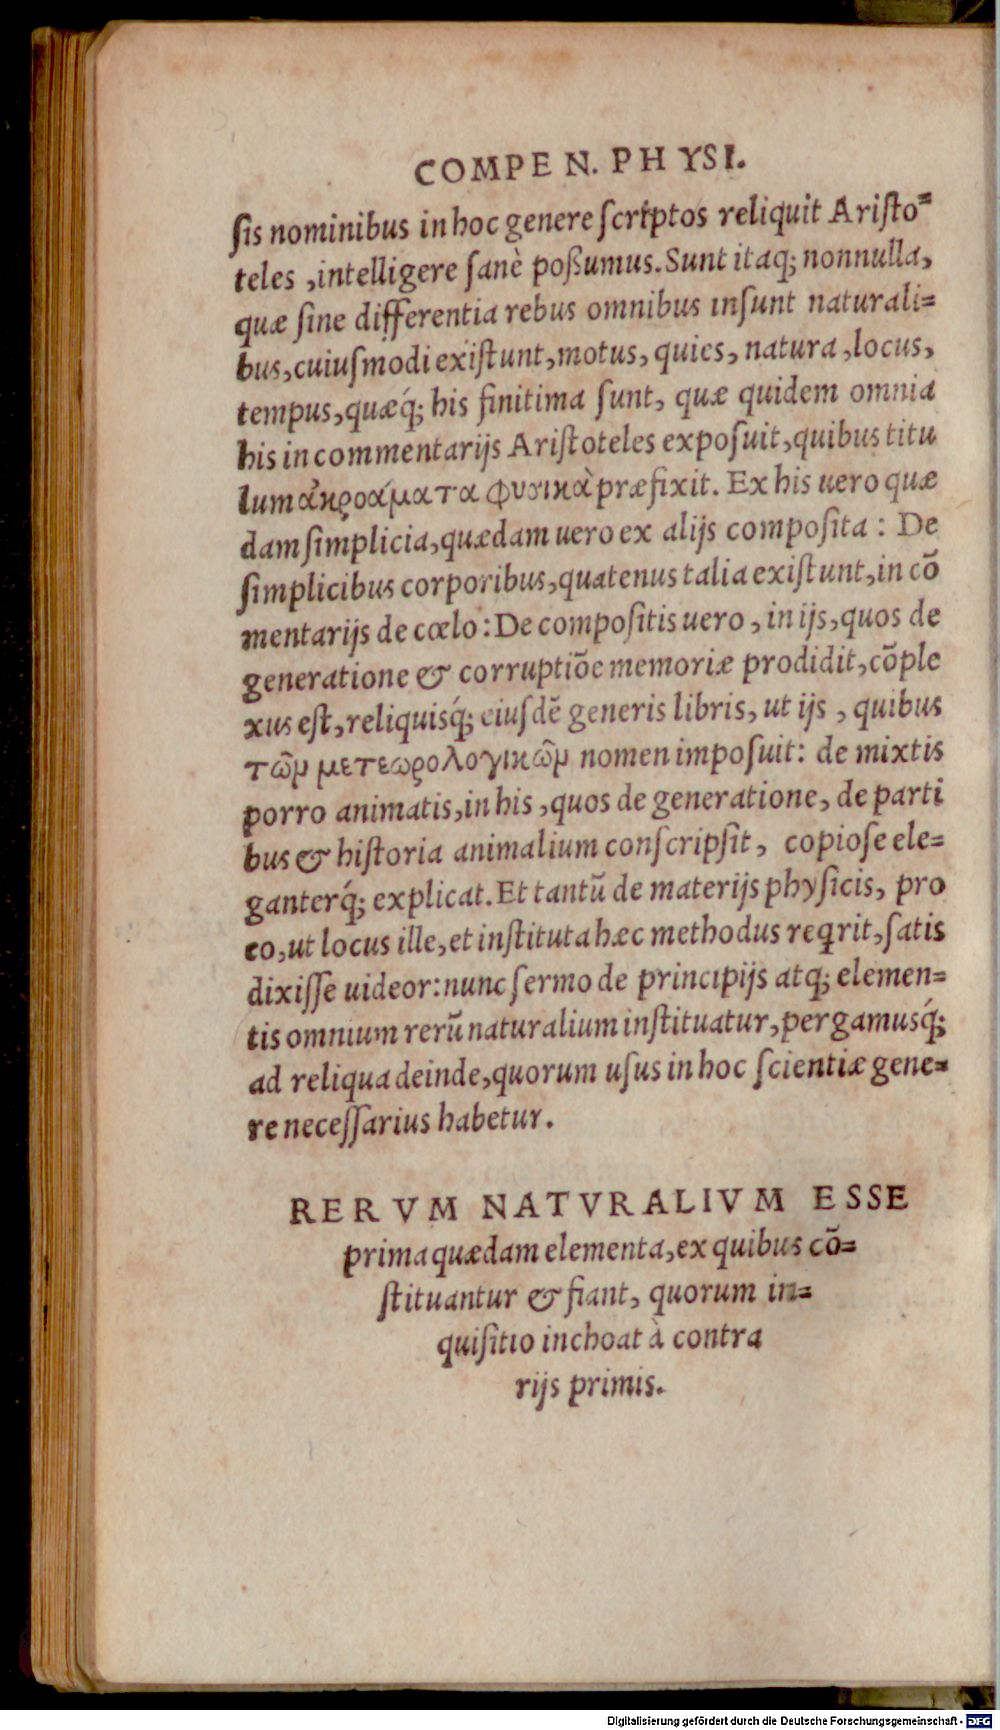 COMPEN. PHYSI.
ſis nominibus in hoc genere ſcriptos reliquit Ariſto=
teles, intelligere ſanè poßumus. Sunt itaq; nonnulla,
quæ ſine differentia rebus omnibus inſunt naturali=
bus, cuiuſmodi exiſtunt, motus, quies, natura, locus,
tempus, quæq́; his finitima ſunt, quæ quidem omnia
his in commentarijs Ariſtoteles expoſuit, quibus titu
lum ἀκροάματα φυσικὰ præfixit. Ex his uero quæ
dam ſimplicia, quædam uero ex alijs compoſita: De
ſimplicibus corporibus, quatenus talia exiſtunt, in cō
mentarijs de cœlo: De compoſitis uero, in ijs, quos de
generatione & corruptiōe memoriæ prodidit, cōple
xus eſt, reliquisq́; eiuſdē generis libris, ut ijs, quibus
τῶν μετεωρολογικῶν nomen impoſuit: de mixtis
porro animatis, in his, quos de generatione, de parti
bus & hiſtoria animalium conſcripſit, copioſe ele=
ganterq́; explicat. Et tantū de materijs phyſicis, pro
eo, ut locus ille, et inſtituta hæc methodus reqrit, ſatis
dixiſſe uideor: nunc ſermo de principijs atq; elemen=
tis omnium rerū naturalium inſtituatur, pergamusq́;
ad reliqua deinde, quorum uſus in hoc ſcientiæ gene=
re neceſſarius habetur.
RERVM NATVRALIVM ESSE
prima quædam elementa, ex quibus cō=
ſtituantur & fiant, quorum in=
quiſitio inchoat à contra
rijs primis.
Digitalisierung gefördert durch die Deutsche Forschungsgemeinschaft - DFG